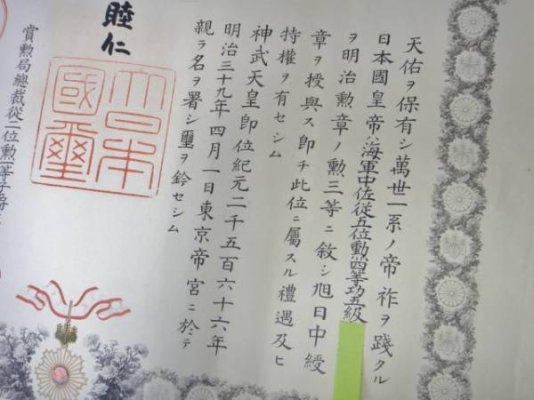 天佑ヲ保有シ萬世一系ノ帝祚ヲ踐タル
日本國皇帝ハ海軍中佐從五位勲四等功五級
ヲ明治勲章ノ勲三等ニ敘シ旭日中綬
章ヲ授與ス即チ此位ニ屬スル禮遇及ヒ
特權ヲ有セシム
神武天皇即位紀元二千五百六十六年
明治三十九年四月一日東京帝宮ニ於テ
親ラ名ヲ署シ璽ヲ鈐セシム
睦仁
大日本國璽
賞勲局總裁從二位勲一等子爵